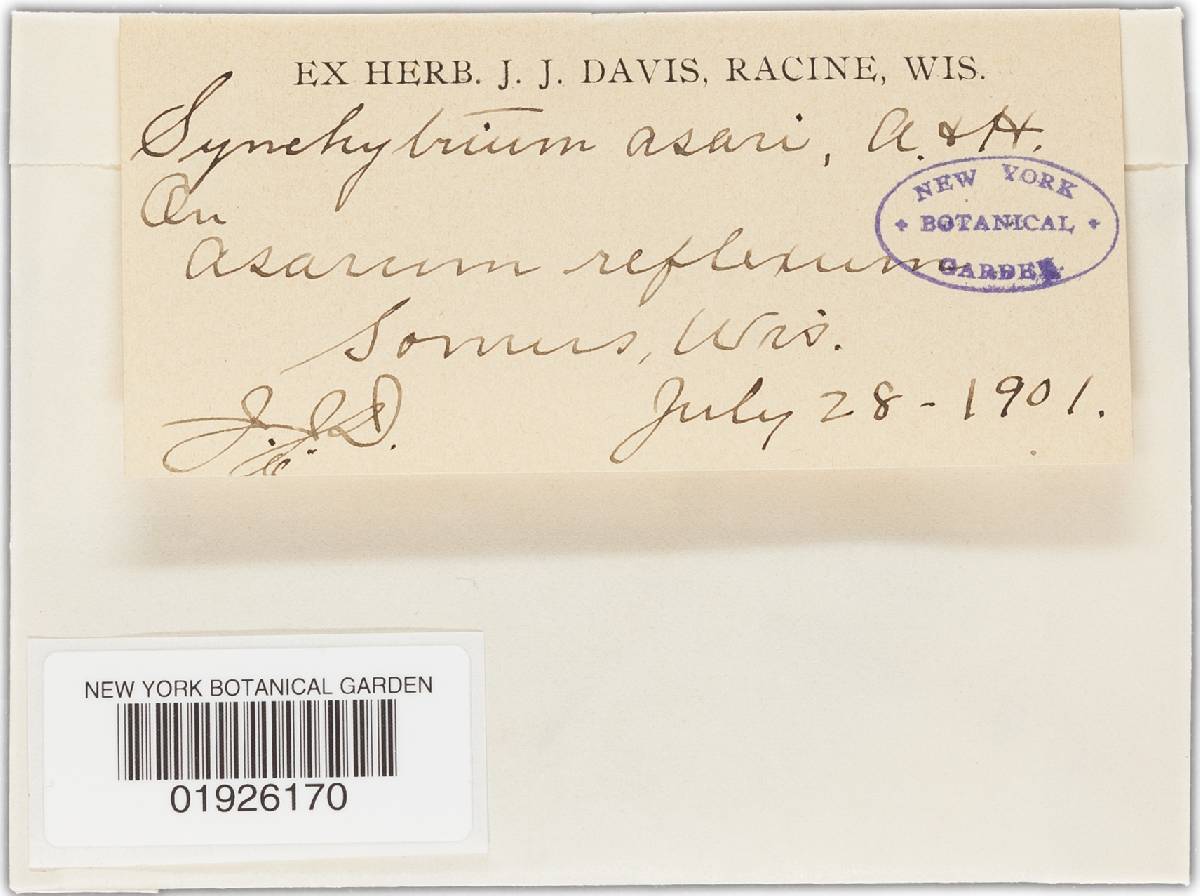 EX HERB. J. J. DAVIS, RACINE, WIS.
Synchytrium asari, A. & H.
On
Asarum reflexum
Somers, Wis.
J. J. D.
July 28 - 1901.
NEW YORK
BOTANICAL
GARDEN
NEW YORK BOTANICAL GARDEN
01926170